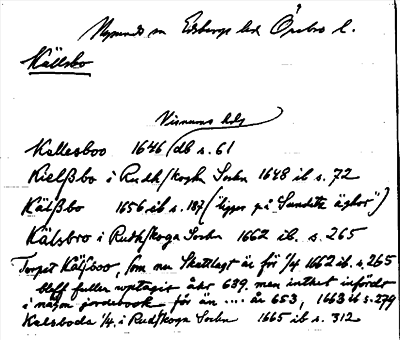 Nysund sn Edsbergs hd Örebro l.
Källsbo
Visnums hd
Kallesboo 1646 db s. 61
Kielßbo i Rudhskogh Sochn 1648 ib s. 72
Kälßbo 1656 ib s. 187 ("ligger på Sundetz äghor")
Kälsbro i Rudhskoga Sochn 1662 ib. s. 265
Torpet Kälsboo, som nu Skattlagt är för 1/4 1662 ib. s. 265
bleff fuller uptagit åhr 639. men inthet infördt
i någon jordebook för än .... år 653, 1663 ib s. 279
Kalsboda 1/4 i Rudskoga Sochn 1665 ib s. 312